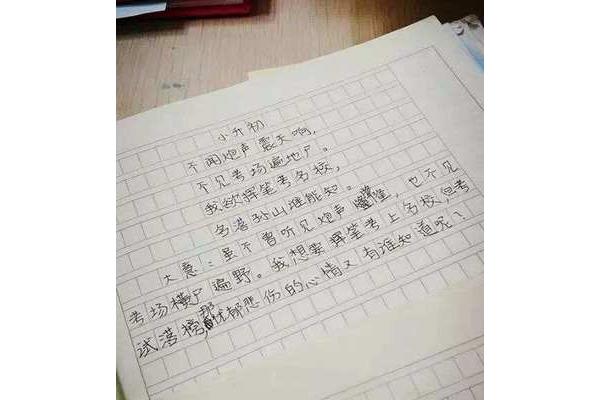 小升初
不闻炮声震天响，
不见考场遍地尸。
我欲挥笔考名校，
名落孙山谁能知。
大意：虽不曾听见炮声隆隆，也不见
考场横尸遍野。我想要挥笔考上名校，但考
试落榜那忧郁悲伤的心情又有谁知道呢？